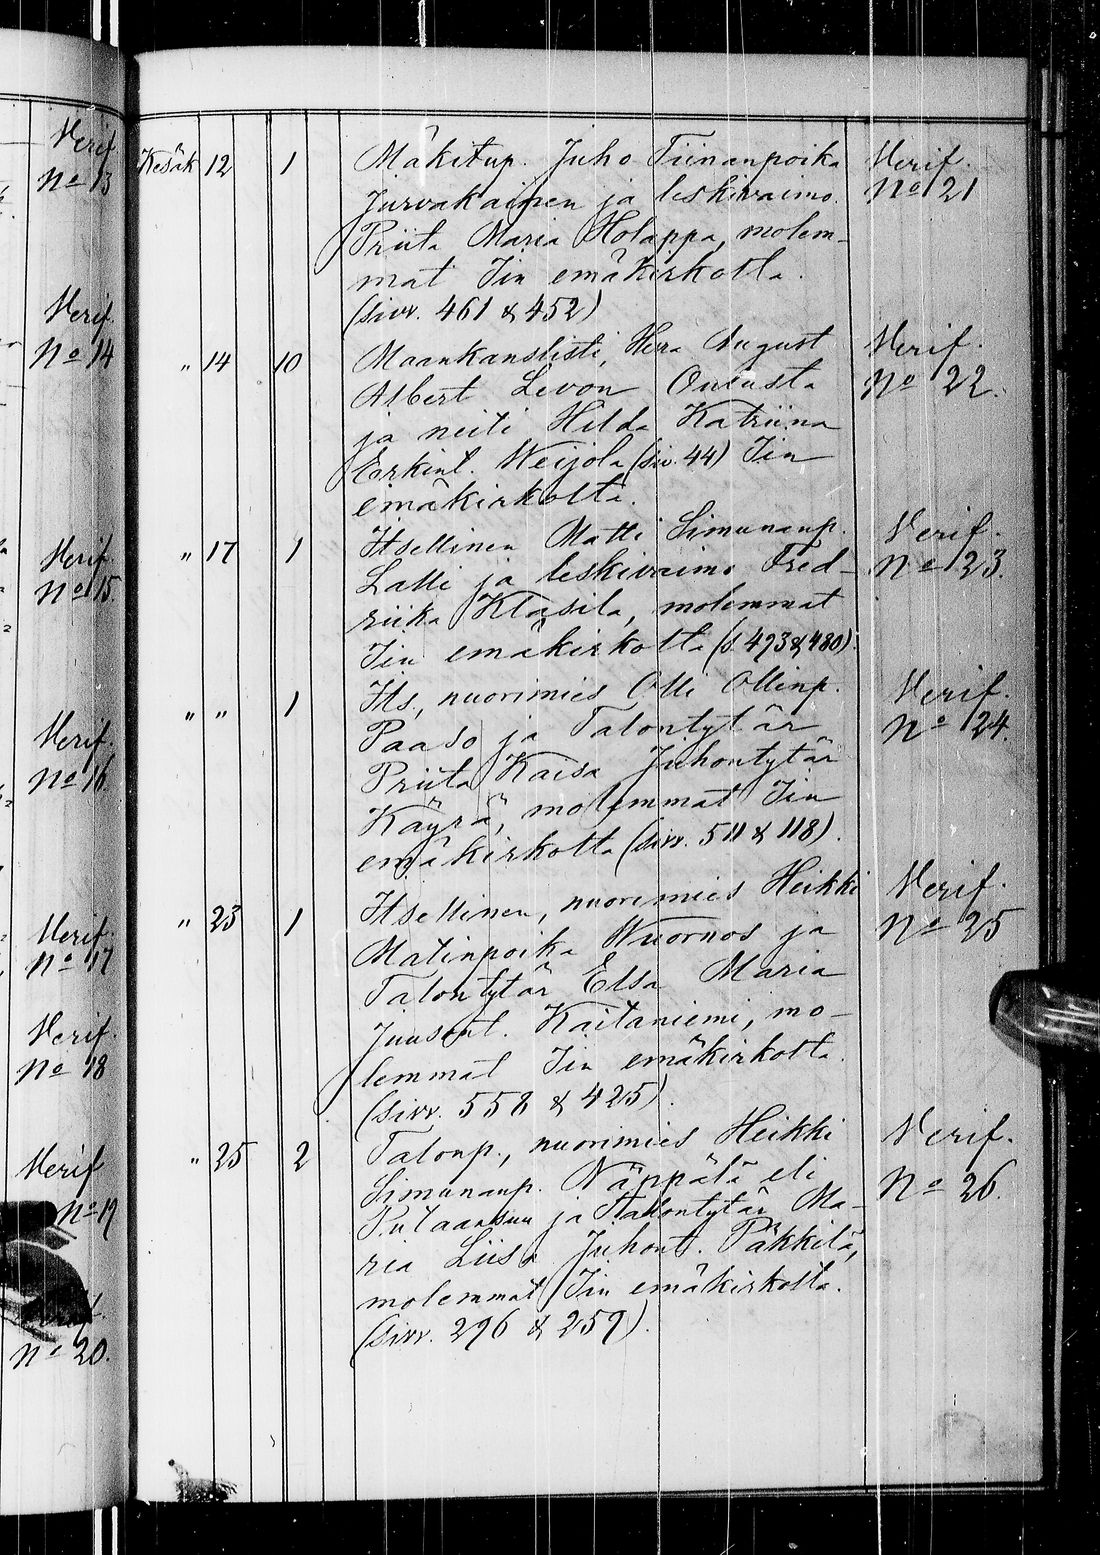 Verif.
No 13
Verif.
No 14
Verif.
No 15.
Verif.
No 16.
Verif.
No 17
Verif.
No 18
Verif
No 19
No 20.
Kesäk 12 1 Mäkitup. Juho Tiinanpoika Verif.
Jurvakainen ja leskivaimo No 21
Priita Maria Holappa, molem-
mat Iin emäkirkolta.
(sivv. 461 & 452)
" 14 10 Maankanslisti, Herra August Verif.
Albert Levon Oulusta No 22.
ja neiti Hilda Katriina
Erkint. Weijola (siv. 44) Iin
emäkirkolta.
" 17 1 Itsellinen Matti Simunanp. Verif.
Lalli ja leskivaimo Fred- No 23.
riika Klasila, molemmat
Iin emäkirkolta (s. 473 & 480).
" " 1 Its., nuorimies Olli Ollinp. Verif.
Paaso ja Talontytär No 24.
Priita Kaisa Juhontytär
Käyrä, molemmat Iin
emäkirkolta (sivv. 511 & 118).
" 23 1 Itsellinen, nuorimies Heikki Verif.
Matinpoika Wuornos ja No 25
Talontytär Elsa Maria
Juusont. Kaitaniemi, mo-
lemmat Iin emäkirkolta.
(sivv. 558 & 425).
" 25 2 Talonp., nuorimies Heikki Verif.
Simunanp. Näppälä eli No 26.
ja Talontytär Ma-
ria Liisa Juhont. Päkkilä,
molemmat Iin emäkirkolta.
(sivv. 296 & 259).